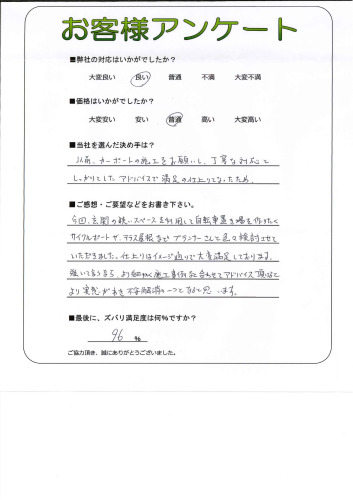 お客様アンケート
■弊社の対応はいかがでしたか?
大変良い 良い 普通 不満 大変不満
■価格はいかがでしたか?
大変安い 安い 普通 高い 大変高い
■当社を選んだ決め手は?
以前、カーポートの施工をお願いし、丁寧な対応と
しっかりとしたアドバイスで満足の仕上りでなったため。
■ご感想・ご要望などをお書き下さい。
今回、玄関の狭いスペースを利用して自転車置き場を作りたく
サイクルポートや、テラス屋根などプランナーさんと色々検討させて
いただきました。仕上りはイメージ通りで大変満足しております。
強いて言うなら、より細やかく施工事例と合わせてアドバイス頂けると
より実感がわき不安解消の一つとなると思います。
■最後に、ズバリ満足度は何%ですか?
96 %
ご協力頂き、誠にありがとうございました。